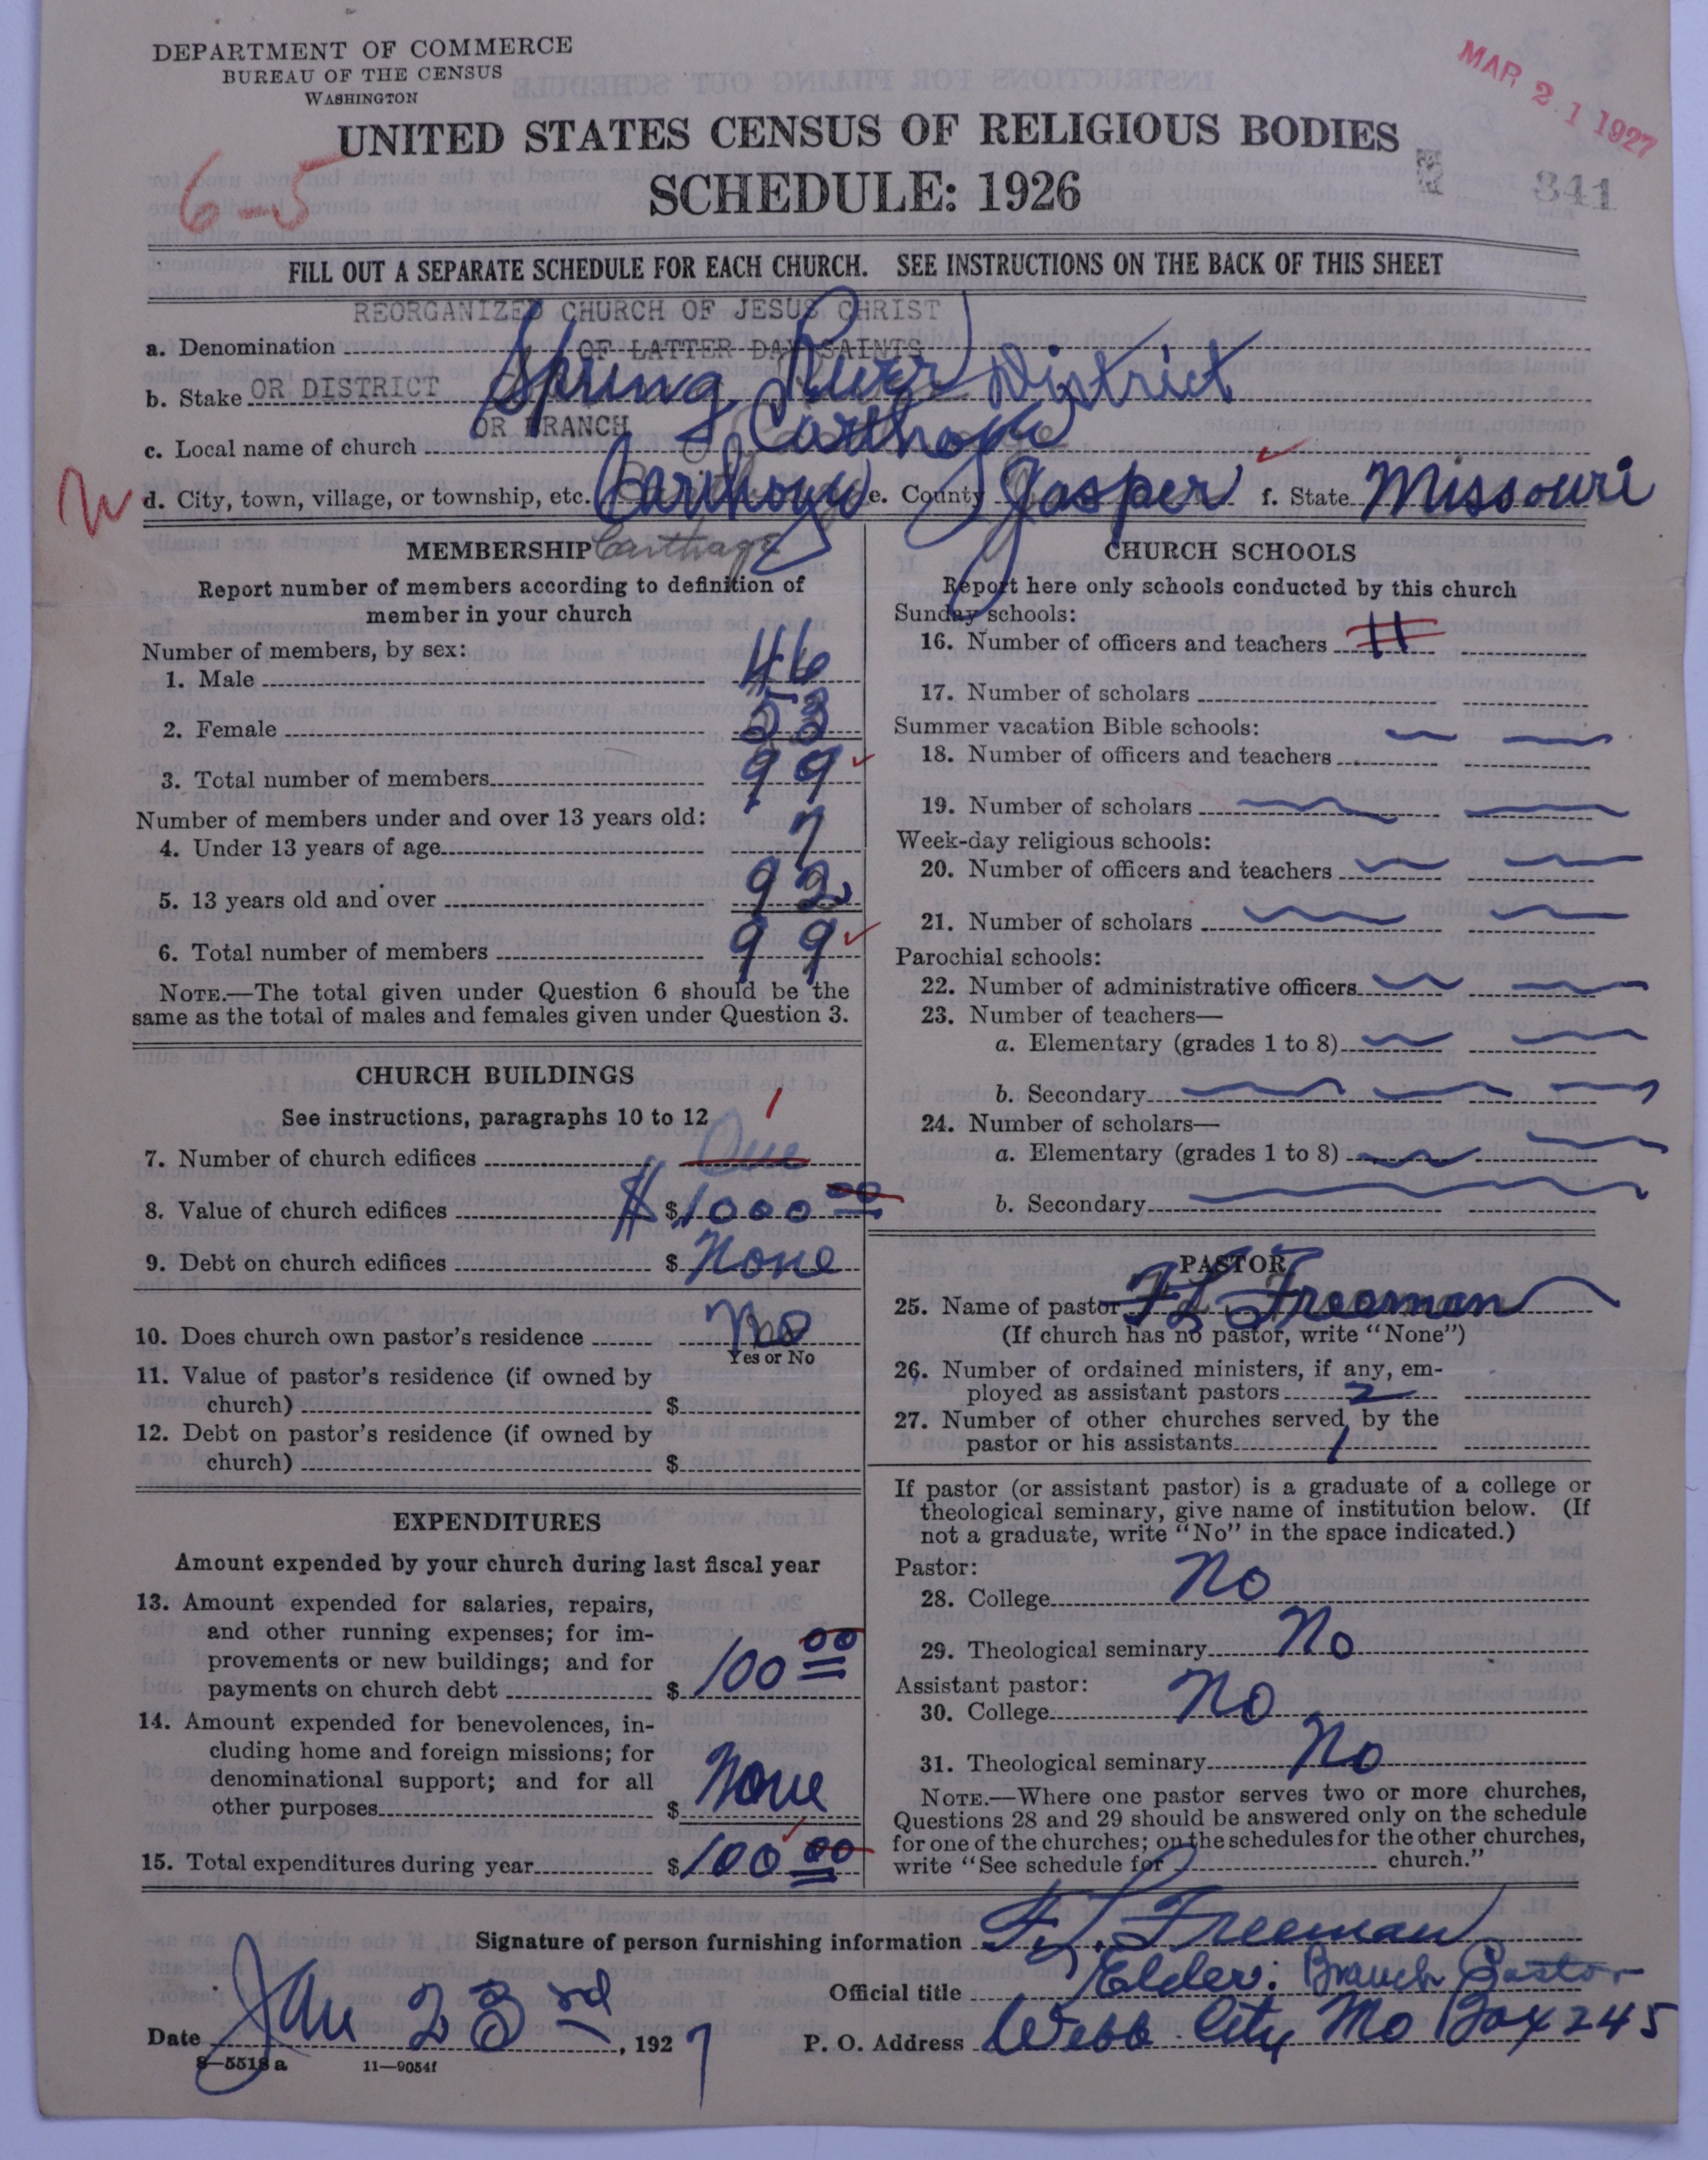 DEPARTMENT OF COMMERCE
BUREAU OF THE CENSUS
WASHINGTON
MAR 21 1927
UNITED STATES CENSUS OF RELIGIOUS BODIES
SCHEDULE: 1926
6-5
341
FILL OUT A SEPARATE SCHEDULE FOR EACH CHURCH. SEE INSTRUCTIONS ON THE BACK OF THIS SHEET
REORGANIZED CHURCH OF JESUS CHRIST
a. Denomination OF LATTER DAY SAINTS
b. Stake OR DISTRICT Spring River District
OR BRANCH
c. Local name of church Carthage
d. City, town, village, or township, etc. Carthage e. County Jasper f. State Missouri
MEMBERSHIP Carthage
Report number of members according to definition of
member in your church
Number of members, by sex:
1. Male 46
2. Female 53
3. Total number of members 99
Number of members under and over 13 years old:
4. Under 13 years of age 7
5. 13 years old and over 92
6. Total number of members 99
NOTE.—The total given under Question 6 should be the
same as the total of males and females given under Question 3.
CHURCH BUILDINGS
See instructions, paragraphs 10 to 12
1
7. Number of church edifices One
8. Value of church edifices $ $1000 00
9. Debt on church edifices $ None
10. Does church own pastor's residence No
Yes or No
11. Value of pastor's residence (if owned by
church) $
12. Debt on pastor's residence (if owned by
church) $
EXPENDITURES
Amount expended by your church during last fiscal year
13. Amount expended for salaries, repairs,
and other running expenses; for im-
provements or new buildings; and for
payments on church debt $ 100 00
14. Amount expended for benevolences, in-
cluding home and foreign missions; for
denominational support; and for all
other purposes $ None
15. Total expenditures during year $ 100 00
CHURCH SCHOOLS
Report here only schools conducted by this church
Sunday schools:
16. Number of officers and teachers
17. Number of scholars
Summer vacation Bible schools:
18. Number of officers and teachers
19. Number of scholars
Week-day religious schools:
20. Number of officers and teachers
21. Number of scholars
Parochial schools:
22. Number of administrative officers
23. Number of teachers—
a. Elementary (grades 1 to 8)
b. Secondary
24. Number of scholars—
a. Elementary (grades 1 to 8)
b. Secondary
PASTOR
25. Name of pastor F L Freeman
(If church has no pastor, write "None")
26. Number of ordained ministers, if any, em-
ployed as assistant pastors 2
27. Number of other churches served by the
pastor or his assistants 1
If pastor (or assistant pastor) is a graduate of a college or
theological seminary, give name of institution below. (If
not a graduate, write "No" in the space indicated.)
Pastor:
28. College No
29. Theological seminary No
Assistant pastor:
30. College No
31. Theological seminary No
NOTE.—Where one pastor serves two or more churches,
Questions 28 and 29 should be answered only on the schedule
for one of the churches; on the schedules for the other churches,
write "See schedule for church."
Signature of person furnishing information F. L. Freeman
Official title Elder. Branch Pastor
Date Jan 23rd, 1927 P. O. Address Webb City Mo Box 245
8—5518 a 11—9054f